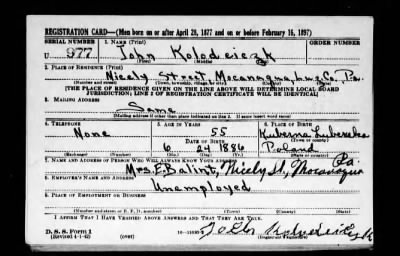 REGISTRATION CARD—(Men born on or after April 28, 1877 and on or before February 16, 1897)
SERIAL NUMBER 1. NAME (Print) ORDER NUMBER
U 977 John Kolodziczk
(First) (Middle) (Last)
2. PLACE OF RESIDENCE (Print)
Nicely Street, Mocanaqua, Luz. Co. Pa.
(Number and street) (Town, township, village, or city) (County) (State)
[THE PLACE OF RESIDENCE GIVEN ON THE LINE ABOVE WILL DETERMINE LOCAL BOARD
JURISDICTION; LINE 2 OF REGISTRATION CERTIFICATE WILL BE IDENTICAL]
3. MAILING ADDRESS
Same
[Mailing address if other than place indicated on line 2. If same insert word same]
4. TELEPHONE 5. AGE IN YEARS 6. PLACE OF BIRTH
None 55 Kuberna
DATE OF BIRTH (Town or county)
6 24 1886 Poland
(Exchange) (Number) (Mo.) (Day) (Yr.) (State or country)
7. NAME AND ADDRESS OF PERSON WHO WILL ALWAYS KNOW YOUR ADDRESS
Mrs. E. Balint, Nicely St., Mocanaqua Pa
8. EMPLOYER'S NAME AND ADDRESS
Unemployed
9. PLACE OF EMPLOYMENT OR BUSINESS
(Number and street or R. F. D. number) (Town) (County) (State)
I AFFIRM THAT I HAVE VERIFIED ABOVE ANSWERS AND THAT THEY ARE TRUE.
D. S. S. Form 1
(Revised 4-1-42) (over)
(Registrant's signature)